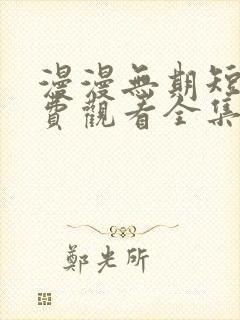 漫漫無期短
費觀看全集
鄭光所